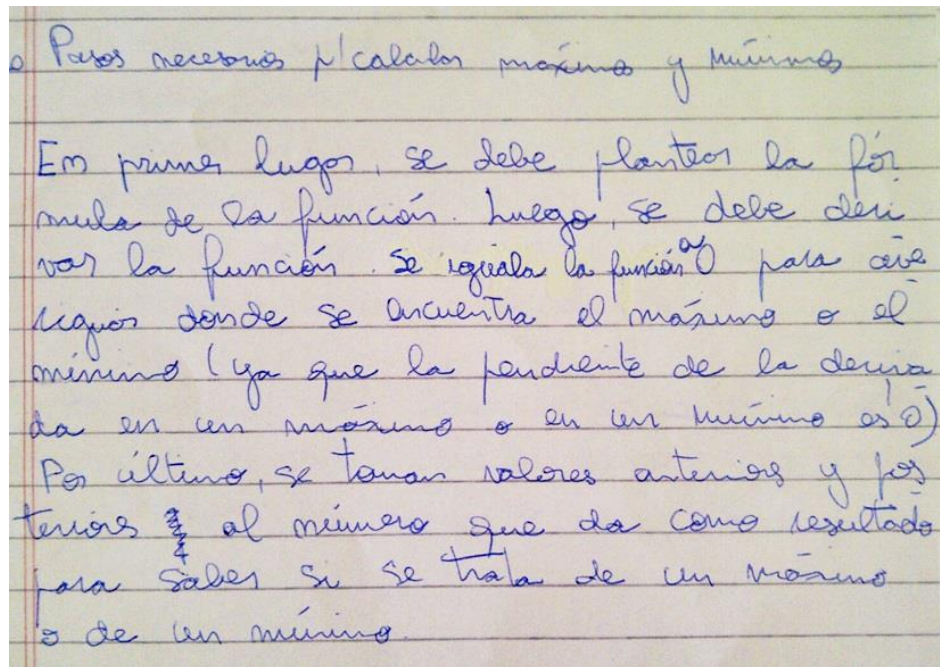 o Pasos necesarios p/ calcular máximos y mínimos
En primer lugar, se debe plantear la fór
mula de la función. Luego, se debe deri
var la función. Se iguala la función a 0 para ave
riguar donde se encuentra el máximo o el
mínimo (ya que la pendiente de la deriva
da en un máximo o en un mínimo es 0)
Por último, se toman valores anteriores y pos
teriores al número que da como resultado
para saber si se trata de un máximo
o de un mínimo.